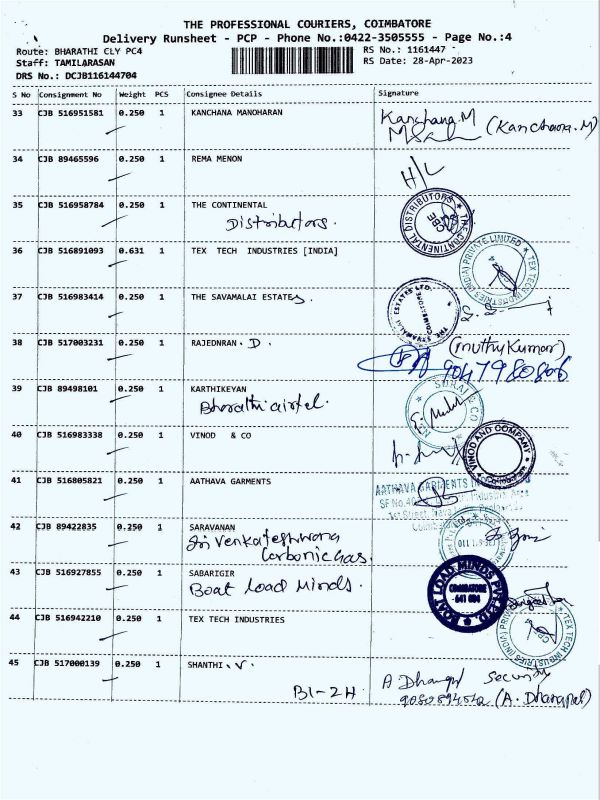 THE PROFESSIONAL COURIERS, COIMBATORE
Delivery Runsheet - PCP - Phone No.:0422-3505555 - Page No.:4
Route: BHARATHI CLY PC4 RS No.: 1161447
Staff: TAMILARASAN RS Date: 28-Apr-2023
DRS No.: DCJB116144704
S No Consignment No Weight PCS Consignee Details Signature
33 CJB 516951581 0.250 1 KANCHANA MANOHARAN Kanchana.M (Kanchana.M)
34 CJB 89465596 0.250 1 REMA MENON H/L
35 CJB 516958784 0.250 1 THE CONTINENTAL
Distributors. THE CONTINENTAL DISTRIBUTORS CBE
36 CJB 516891093 0.631 1 TEX TECH INDUSTRIES [INDIA] TEX TECH INDUSTRIES (INDIA) PRIVATE LIMITED
37 CJB 516983414 0.250 1 THE SAVAMALAI ESTATES. ESTATES LTD. COIMBATORE
38 CJB 517003231 0.250 1 RAJEDNRAN. D. (Muthu Kumar)
9047980806
39 CJB 89498101 0.250 1 KARTHIKEYAN
Bharathi airtel. & CO
40 CJB 516983338 0.250 1 VINOD & CO VINOD AND COMPANY
41 CJB 516805821 0.250 1 AATHAVA GARMENTS AATHAVA GARMENTS
SF No.
42 CJB 89422835 0.250 1 SARAVANAN
Sri Venkateshwara
Carbonic Gas.
43 CJB 516927855 0.250 1 SABARIGIR
Boat Load Minds. BOAT LOAD MINDS PVT LTD. COIMBATORE 641 004
44 CJB 516942210 0.250 1 TEX TECH INDUSTRIES TEX TECH INDUSTRIES (INDIA)
45 CJB 517000139 0.250 1 SHANTHI. V. A Dhanpal Security
B1-2H (A. Dhanapal)